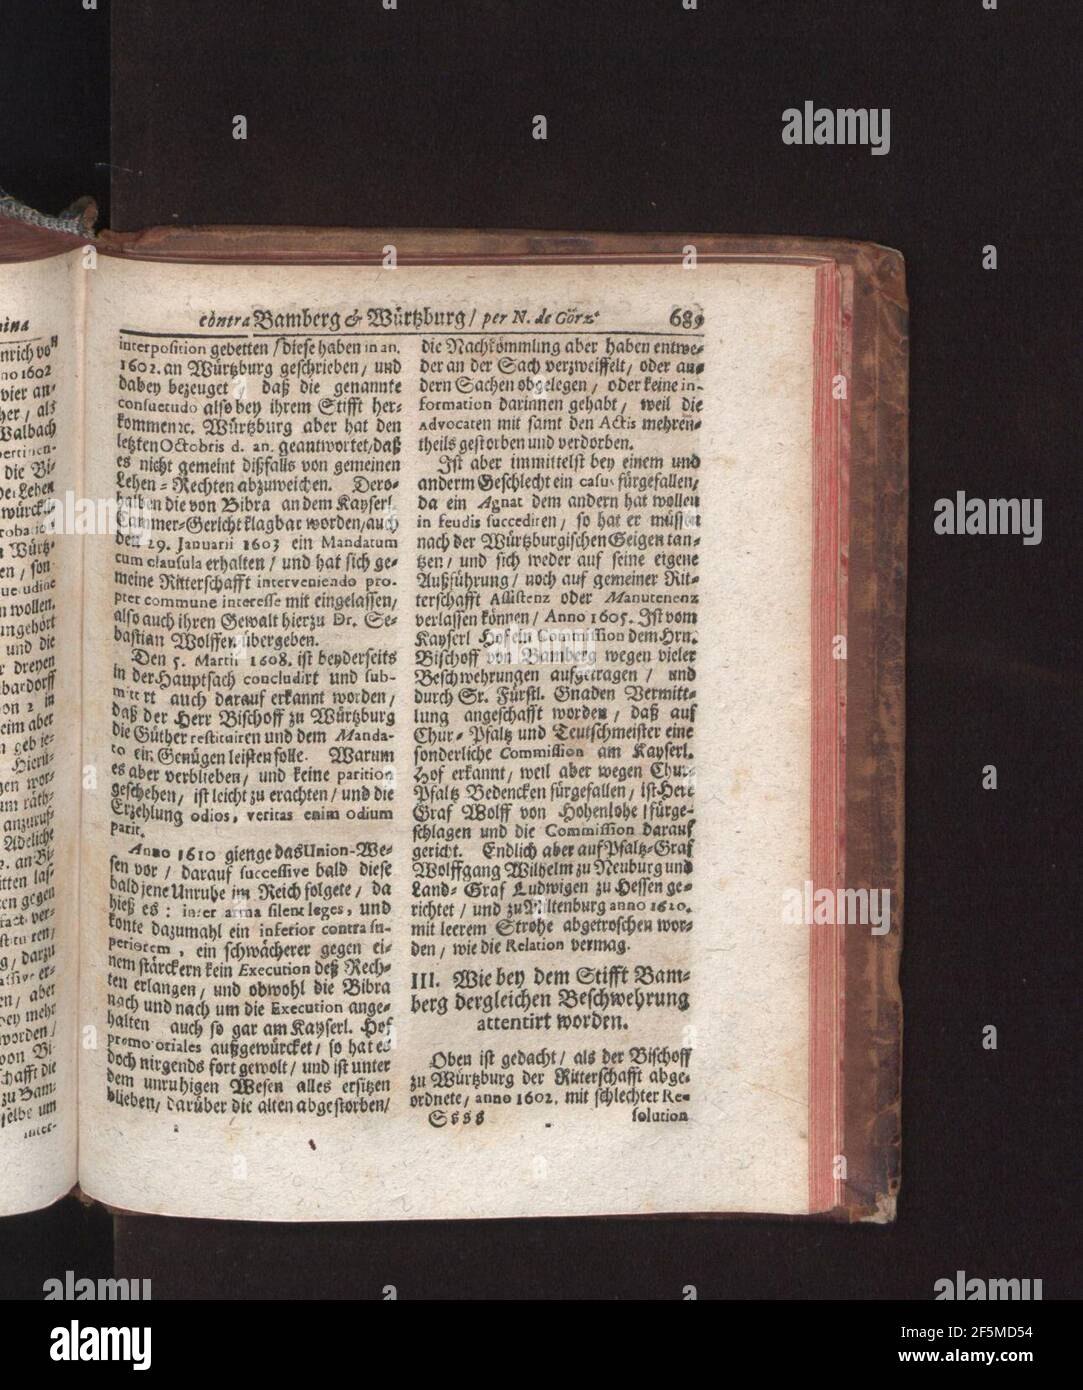 contra Bamberg & Würtzburg / per N. de Görz. 689
interposition gebetten / diese haben in an.
1602. an Würtzburg geschrieben / und
dabey bezeuget / daß die genannte
consuetudo also bey ihrem Stifft her-
kommen ꝛc. Würtzburg aber hat den
letzten Octobris d. an. geantwortet / daß
es nicht gemeint dißfalls von gemeinen
Lehen-Rechten abzuweichen. Dero-
halben die von Bibra an dem Kayserl.
Cammer-Gericht klagbar worden / auch
den 29. Januarii 1603 ein Mandatum
cum clausula erhalten / und hat sich ge-
meine Ritterschafft interveniendo pro-
pter commune interesse mit eingelassen /
also auch ihren Gewalt hierzu Dr. Se-
bastian Wolffen übergeben.
Den 5. Martii 1608. ist beyderseits
in der Hauptsach concludirt und sub-
mittirt auch darauf erkannt worden /
daß der Herr Bischoff zu Würtzburg
die Güther restituiren und dem Manda-
to ein Genügen leisten solle. Warum
es aber verblieben / und keine parition
geschehen / ist leicht zu erachten / und die
Erzehlung odios, veritas enim odium
parit.
Anno 1610 gienge das Union-We-
sen vor / darauf successive bald diese
bald jene Unruhe im Reich folgete / da
hieß es: inter arma silent leges, und
konte dazumahl ein inferior contra su-
periorem, ein schwächerer gegen ei-
nem stärckern kein Execution deß Rech-
ten erlangen / und obwohl die Bibra
nach und nach um die Execution ange-
halten auch so gar am Kayserl. Hof
promotoriales außgewürcket / so hat es
doch nirgends fort gewolt / und ist unter
dem unruhigen Wesen alles ersitzen
blieben / darüber die alten abgestorben /
die Nachkömmling aber haben entwe-
der an der Sach verzweiffelt / oder an-
dern Sachen obgelegen / oder keine in-
formation darinnen gehabt / weil die
Advocaten mit samt den Actis mehren-
theils gestorben und verdorben.
Ist aber immittelst bey einem und
anderm Geschlecht ein casus fürgefallen /
da ein Agnat dem andern hat wollen
in feudis succediren / so hat er müssen
nach der Würtzburgischen Geigen tan-
tzen / und sich weder auf seine eigene
Außführung / noch auf gemeiner Rit-
terschafft Assistenz oder Manutenenz
verlassen können / Anno 1605. Ist vom
Kayserl Hof ein Commission dem Hrn.
Bischoff von Bamberg wegen vieler
Beschwehrungen aufgetragen / und
durch Sr. Fürstl. Gnaden Vermitt-
lung angeschafft worden / daß auf
Chur-Pfaltz und Teutschmeister eine
sonderliche Commission am Kayserl.
Hof erkannt / weil aber wegen Chur-
Pfaltz Bedencken fürgefallen / ist Herr
Graf Wolff von Hohenlohe fürge-
schlagen und die Commission darauf
gericht. Endlich aber auf Pfaltz-Graf
Wolffgang Wilhelm zu Neuburg und
Land-Graf Ludwigen zu Hessen ge-
richtet / und zu Miltenburg anno 1610.
mit leerem Strohe abgetroschen wor-
den / wie die Relation vermag.
III. Wie bey dem Stifft Bam-
berg dergleichen Beschwehrung
attentirt worden.
Oben ist gedacht / als der Bischoff
zu Würtzburg der Ritterschafft abge-
ordnete / anno 1602. mit schlechter Re-
Ssss solution
alamy
Image ID: 2F5MD54
www.alamy.com